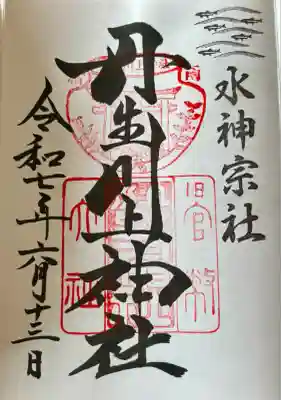 水神宗社
丹生川上神社
令和七年六月十三日
官幣
大社